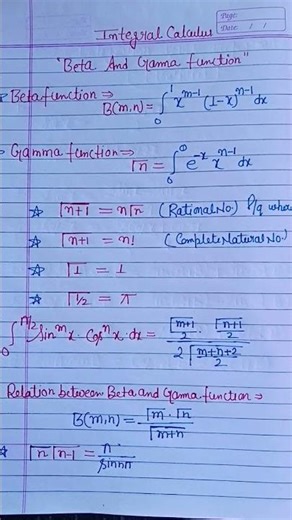 Page:
Date: / /
Integral Calculus
"Beta And Gamma function"
Beta function ⇒
B(m,n) = ∫₀¹ x^(m-1) (1-x)^(n-1) dx
Gamma function ⇒
Γn = ∫₀^∞ e^(-x) x^(n-1) dx
☆ Γn+1 = nΓn (Rational No.) P/q where
☆ Γn+1 = n! (Complete Natural No.)
☆ Γ1 = 1
☆ Γ1/2 = π
∫₀^(π/2) Sin^m x · Cos^n x · dx = (Γ(m+1)/2 · Γ(n+1)/2) / (2 Γ(m+n+2)/2)
Relation between Beta and Gamma function ⇒
B(m,n) = (Γm · Γn) / Γm+n
☆ Γn Γn-1 = π / sin nπ